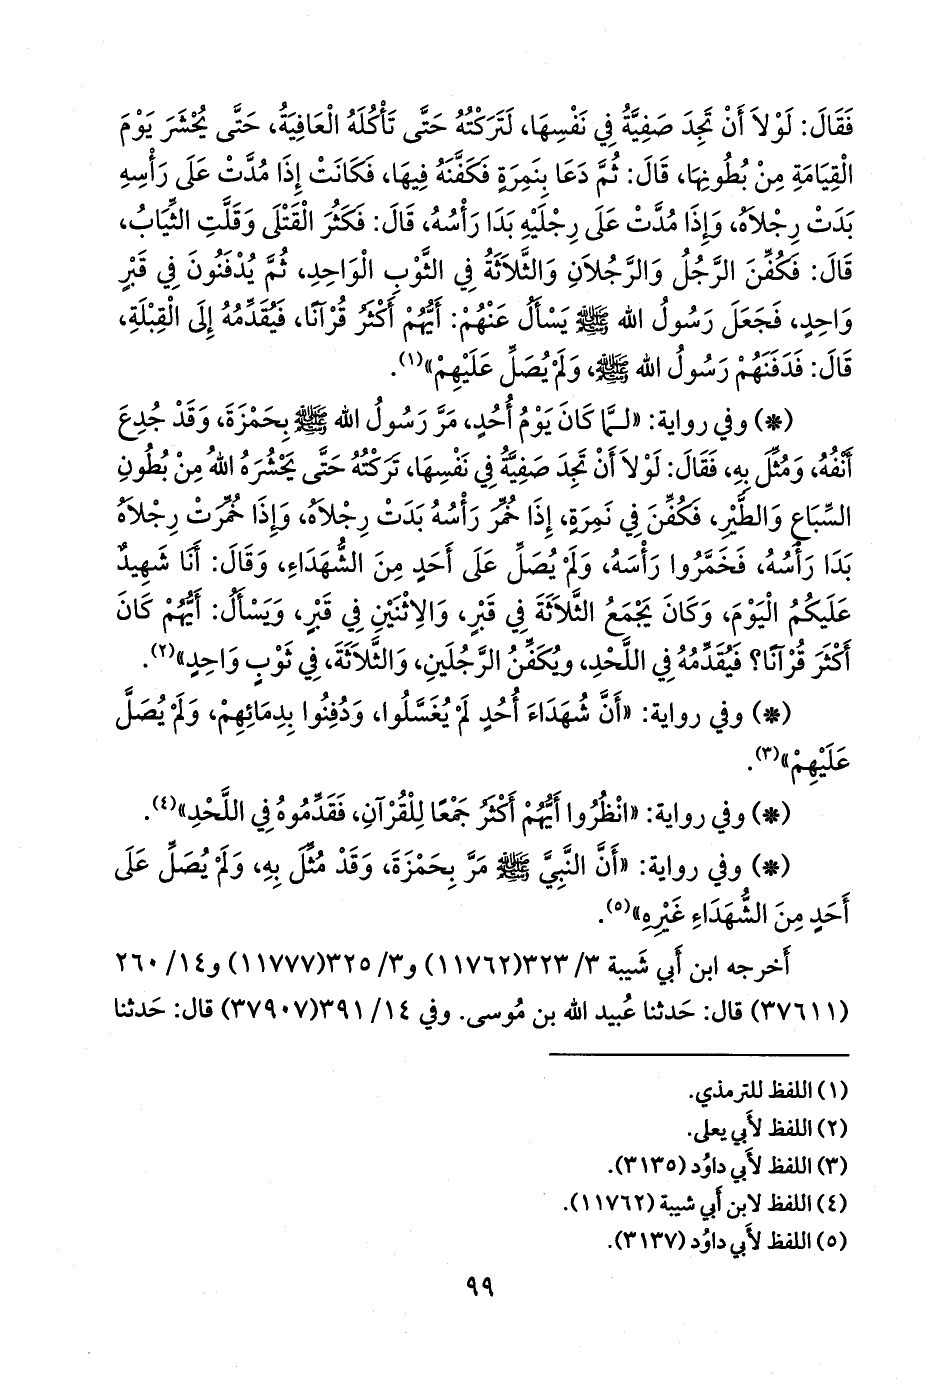 فَقَالَ: لَوْلاَ أَنْ تَجِدَ صَفِيَّةُ فِي نَفْسِهَا، لَتَرَكْتُهُ حَتَّى تَأْكُلَهُ الْعَافِيَةُ، حَتَّى يُحْشَرَ يَوْمَ
الْقِيَامَةِ مِنْ بُطُونِهَا، قَالَ: ثُمَّ دَعَا بِنَمِرَةٍ فَكَفَّنَهُ فِيهَا، فَكَانَتْ إِذَا مُدَّتْ عَلَى رَأْسِهِ
بَدَتْ رِجْلاَهُ، وَإِذَا مُدَّتْ عَلَى رِجْلَيْهِ بَدَا رَأْسُهُ، قَالَ: فَكَثُرَ الْقَتْلَى وَقَلَّتِ الثِّيَابُ،
قَالَ: فَكُفِّنَ الرَّجُلُ وَالرَّجُلاَنِ وَالثَّلاَثَةُ فِي الثَّوْبِ الْوَاحِدِ، ثُمَّ يُدْفَنُونَ فِي قَبْرٍ
وَاحِدٍ، فَجَعَلَ رَسُولُ الله ﷺ يَسْأَلُ عَنْهُمْ: أَيُّهُمْ أَكْثَرُ قُرْآنًا، فَيُقَدِّمُهُ إِلَى الْقِبْلَةِ،
قَالَ: فَدَفَنَهُمْ رَسُولُ الله ﷺ، وَلَمْ يُصَلِّ عَلَيْهِمْ»(١).
(*) وفي رواية: «لمَّا كَانَ يَوْمُ أُحُدٍ، مَرَّ رَسُولُ الله ﷺ بِحَمْزَةَ، وَقَدْ جُدِعَ
أَنْفُهُ، وَمُثِّلَ بِهِ، فَقَالَ: لَوْلاَ أَنْ تَجِدَ صَفِيَّةُ فِي نَفْسِهَا، تَرَكْتُهُ حَتَّى يَحْشُرَهُ اللهُ مِنْ بُطُونِ
السِّبَاعِ وَالطَّيْرِ، فَكُفِّنَ فِي نَمِرَةٍ، إِذَا خُمِّرَ رَأْسُهُ بَدَتْ رِجْلاَهُ، وَإِذَا خُمِّرَتْ رِجْلاَهُ
بَدَا رَأْسُهُ، فَخَمَّرُوا رَأْسَهُ، وَلَمْ يُصَلِّ عَلَى أَحَدٍ مِنَ الشُّهَدَاءِ، وَقَالَ: أَنَا شَهِيدٌ
عَلَيكُمُ الْيَوْمَ، وَكَانَ يَجْمَعُ الثَّلاَثَةَ فِي قَبْرٍ، وَالِاثْنَيْنِ فِي قَبْرٍ، وَيَسْأَلُ: أَيُّهُمْ كَانَ
أَكْثَرَ قُرْآنًا؟ فَيُقَدِّمُهُ فِي اللَّحْدِ، ويُكَفِّنُ الرَّجُلَينِ، وَالثَّلاَثَةَ، فِي ثَوْبٍ وَاحِدٍ»(٢).
(*) وفي رواية: «أَنَّ شُهَدَاءَ أُحُدٍ لَمْ يُغَسَّلُوا، وَدُفِنُوا بِدِمَائِهِمْ، وَلَمْ يُصَلَّ
عَلَيْهِمْ»(٣).
(*) وفي رواية: «انْظُرُوا أَيُّهُمْ أَكْثَرُ جَمْعًا لِلْقُرْآنِ، فَقَدِّمُوهُ فِي اللَّحْدِ»(٤).
(*) وفي رواية: «أَنَّ النَّبِيَّ ﷺ مَرَّ بِحَمْزَةَ، وَقَدْ مُثِّلَ بِهِ، وَلَمْ يُصَلِّ عَلَى
أَحَدٍ مِنَ الشُّهَدَاءِ غَيْرِهِ»(٥).
أَخرجه ابن أَبي شَيبة ٣/ ٣٢٣(١١٧٦٢) و٣/ ٣٢٥(١١٧٧٧) و١٤/ ٢٦٠
(٣٧٦١١) قال: حَدثنا عُبيد الله بن مُوسى. وفي ١٤/ ٣٩١(٣٧٩٠٧) قال: حَدثنا
(١) اللفظ للترمذي.
(٢) اللفظ لأَبي يعلى.
(٣) اللفظ لأَبي داوُد (٣١٣٥).
(٤) اللفظ لابن أَبي شيبة (١١٧٦٢).
(٥) اللفظ لأَبي داوُد (٣١٣٧).
٩٩